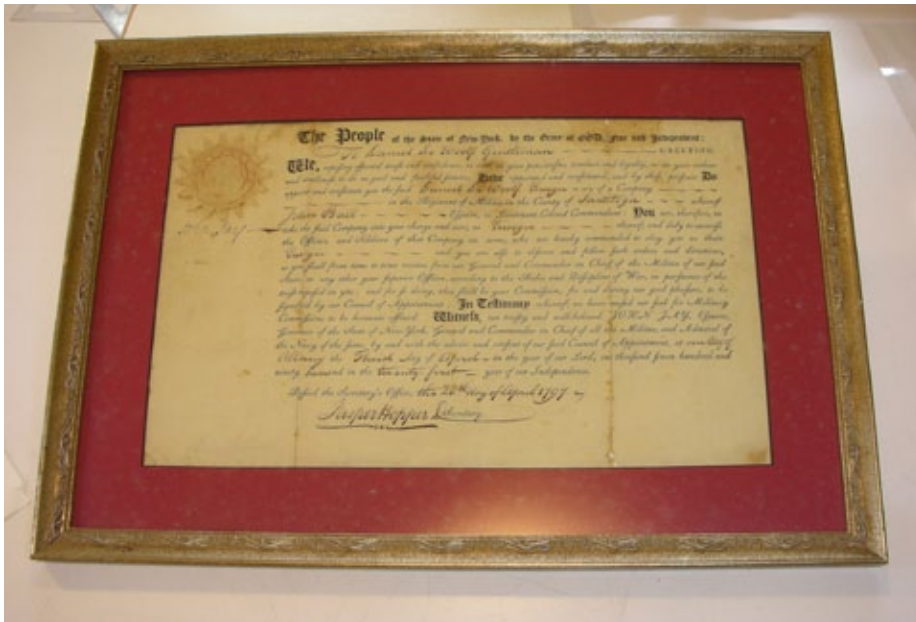 The People of the State of New-York, by the Grace of GOD, Free and Independent:
To Daniel De Woolf Gentleman GREETING
We, reposing especial trust and confidence, as well in your patriotism, conduct and loyalty, as in your valour
and readiness to do us good and faithful service; Have appointed and constituted, and by these presents, Do
appoint and constitute you the said Daniel De Woolf Ensign of a Company
in the Regiment of Militia in the County of Saratoga whereof
Esquire, is Lieutenant Colonel Commandant: You are, therefore, to
John Jay
take the said Company into your charge and care, as Ensign thereof, and duly to exercise
the Officers and Soldiers of that Company in arms, who are hereby commanded to obey you as their
Ensign and you are also to observe and follow such orders and directions,
as you shall from time to time receive from our General and Commander in Chief of the Militia of our said
State, or any other your superior Officer, according to the Rules and Discipline of War, in pursuance of the
trust reposed in you; and for so doing, this shall be your Commission, for and during our good pleasure, to be
signified by our Council of Appointment. In Testimony whereof, we have caused our seal for Military
Commissions to be hereunto affixed. Witness, our trusty and well-beloved JOHN JAY, Esquire,
Governor of the State of New York, General and Commander in Chief of all the Militia, and Admiral of
the Navy of the same, by and with the advice and consent of our said Council of Appointment, at our City of
Albany the Third day of April in the year of our Lord, one thousand seven hundred and
ninety seven and in the twenty first year of our Independence.
Passed the Secretary's Office, the 28th day of April 1797
Jasper Hopper D Secretary